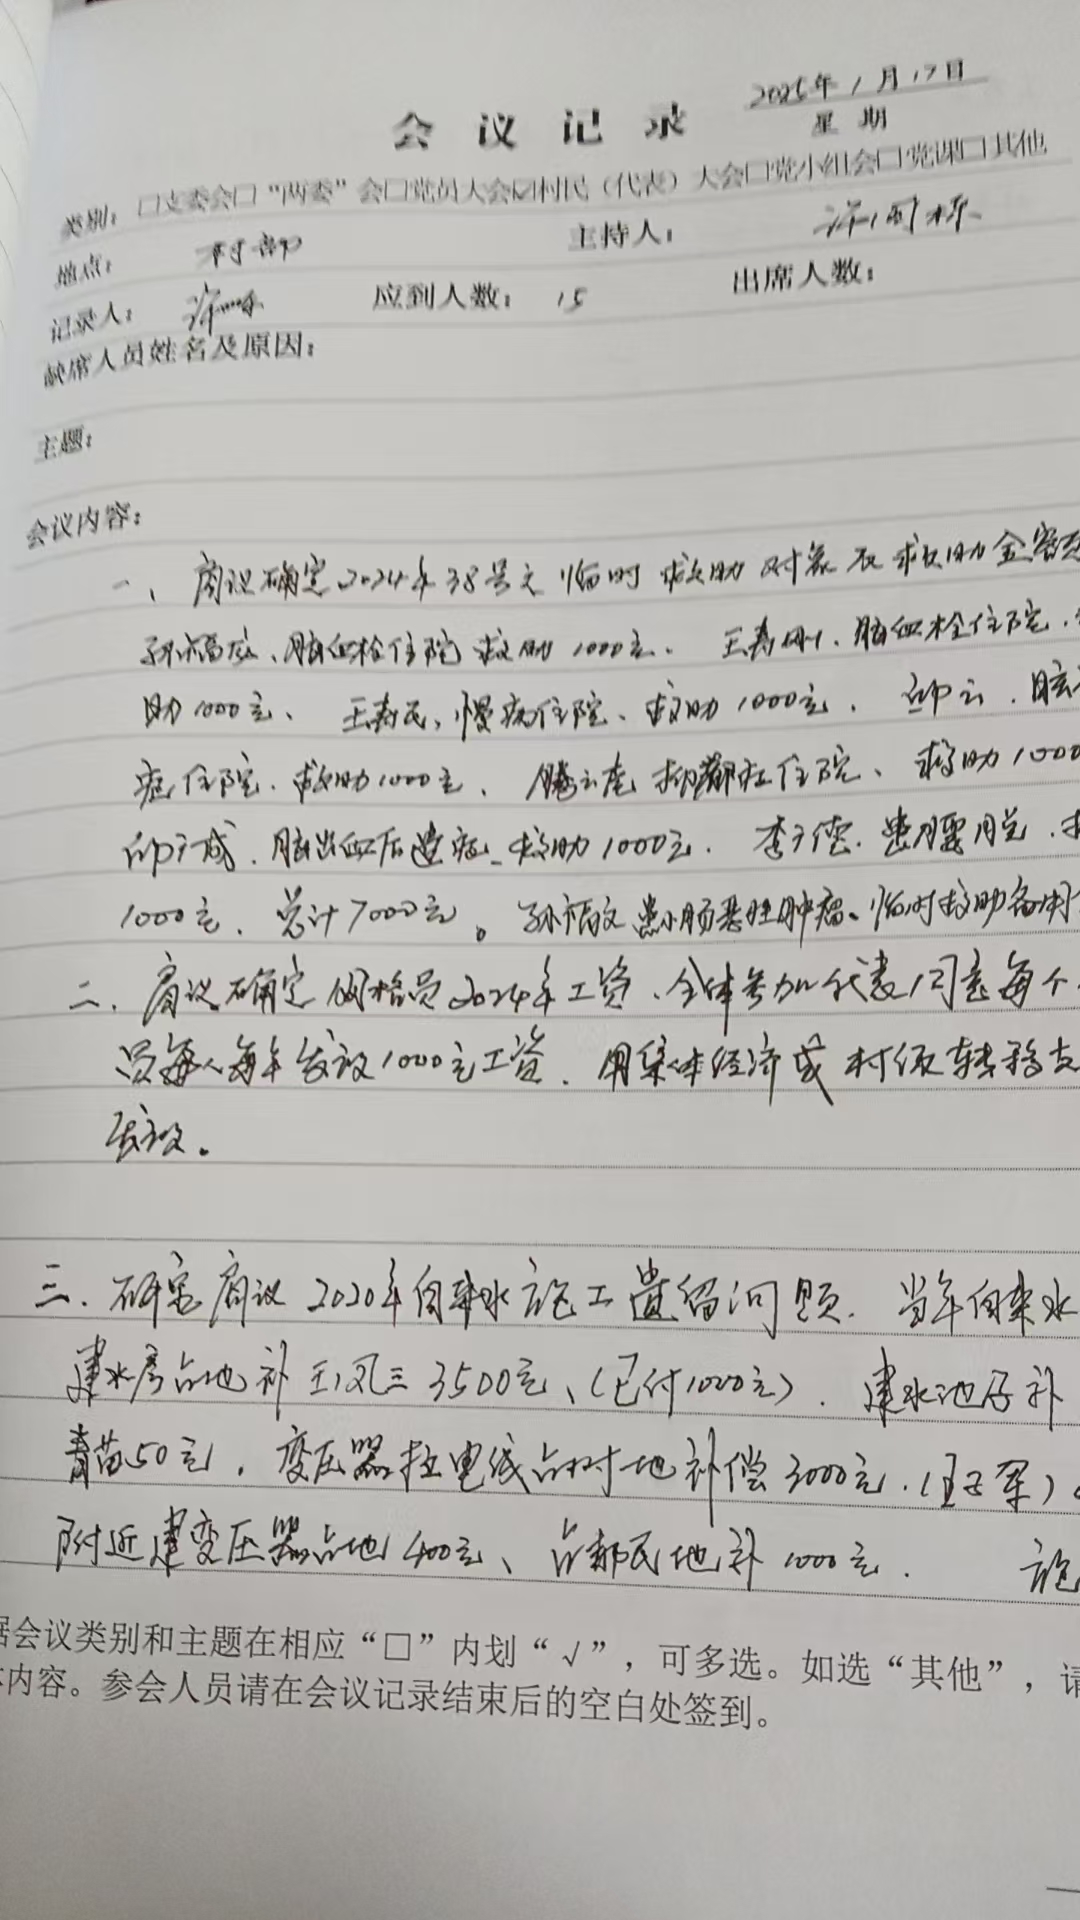 2025年1月17日
会议记录
星期
类别：□支委会□“两委”会□党员大会☑村民（代表）大会□党小组会□党课□其他
地点： 村部 主持人：
记录人： 应到人数： 15 出席人数：
缺席人员姓名及原因：
主题：
会议内容：
一、商议确定2024年38号文临时救助对象及救助金额
脑血栓住院救助1000元、王寿刚、脑血栓住院、
助1000元、王寿民，慢病住院、救助1000元、
症住院、救助1000元、抑郁症住院、救助1000
脑出血后遗症、救助1000元．李广德、患腰脱、
1000元、总计7000元。孙福文患小肠恶性肿瘤、临时救助备用
二、商议确定网格员2024年工资、全体参加代表同意每个
员每人每年发放1000元工资、用集体经济或村级转移支
发放。
三、研究商议2020年自来水施工遗留问题．当年自来水
建水房占地补王凤三3500元、(已付1000元)．建水池子补
青苗50元，变压器拉电线占村地补偿3000元．
附近建变压器占地400元、占 民地补1000元． 施
据会议类别和主题在相应“□”内划“√”，可多选。如选“其他”，请
内容。参会人员请在会议记录结束后的空白处签到。